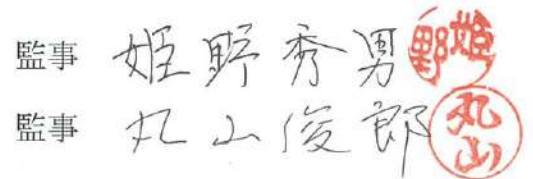 監事 姫野秀男 姫野
監事 丸山俊郎 丸山